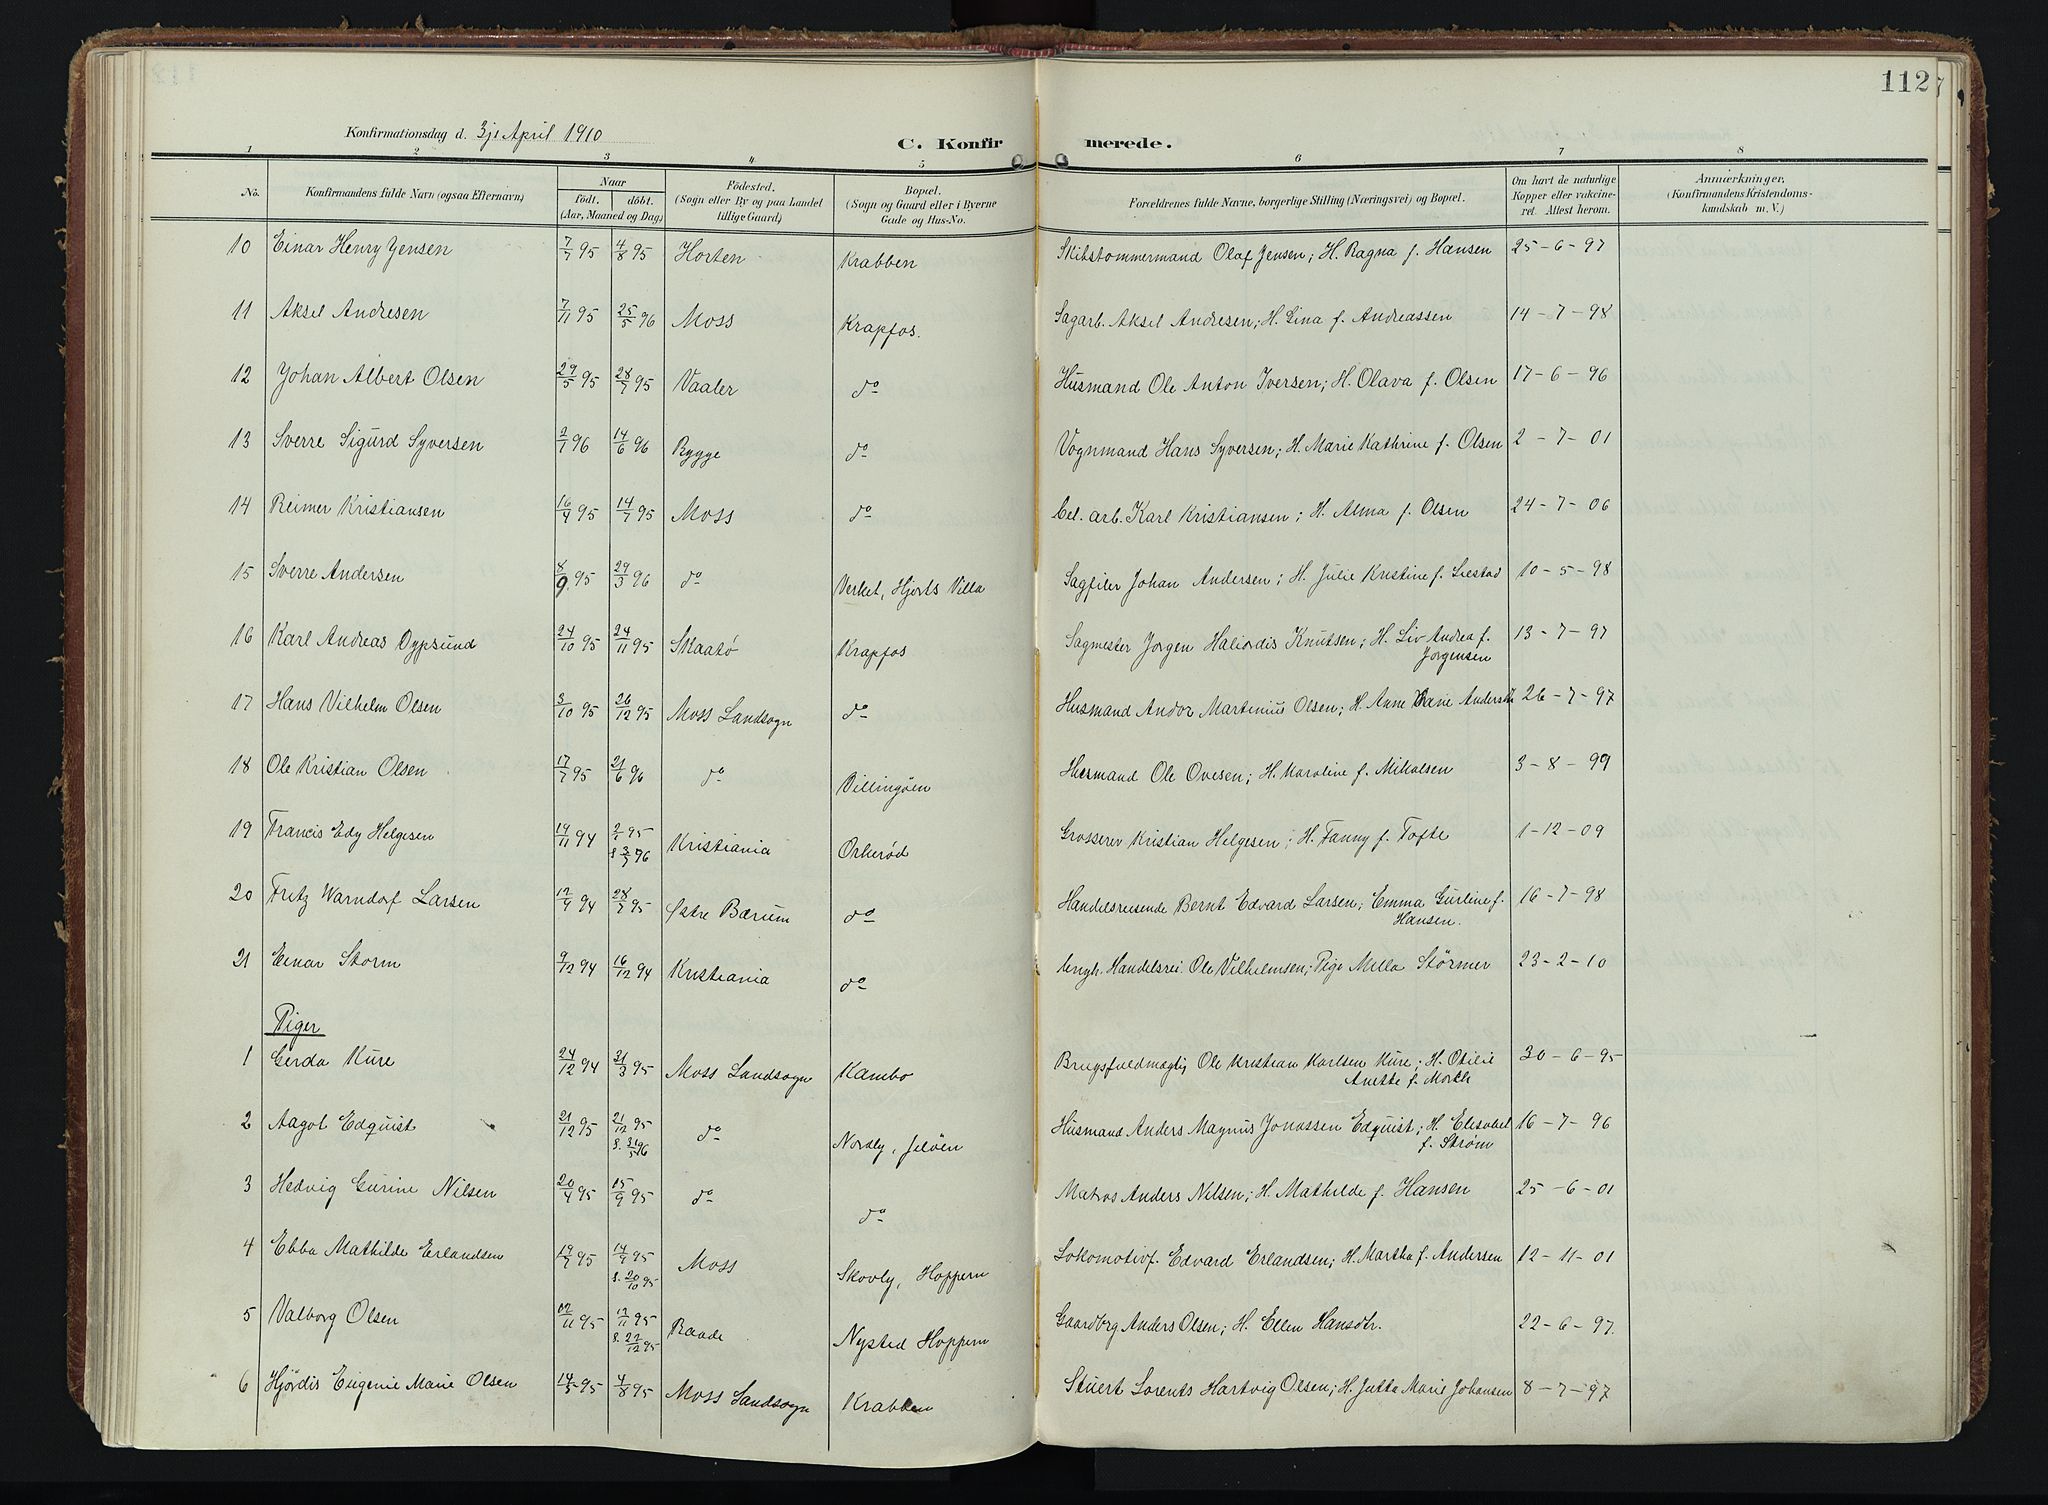 112
Konfirmationsdag d. 3je April 1910
C. Konfirmerede.
1 2 3 4 5 6 7 8
No. Konfirmandens fulde Navn (ogsaa Efternavn) Naar født. døbt. (Aar, Maaned og Dag) Fødested. (Sogn eller By og paa Landet tillige Gaard) Bopæl. (Sogn og Gaard eller i Byerne Gade og Hus-No. Forældrenes fulde Navne, borgerlige Stilling (Næringsvei) og Bopæl. Om havt de naturlige Kopper eller vakcineret. Attest herom. Anmærkninger. (Konfirmandens Kristendomskundskab m. V.)
10 Einar Henry Jensen 7/7 95 4/8 95 Horten Krabben Skibstømmermand Olaf Jensen; H. Ragna f. Hansen 25-6-97
11 Aksel Andresen 7/11 95 25/5 96 Moss Krapfos. Sagarb. Aksel Andresen; H. Gina f. Andreassen 14-7-98
12 Johan Albert Olsen 29/5 95 28/7 95 Vaaler do Husmand Ole Anton Iversen; H. Olava f. Olsen 17-6-96
13 Sverre Sigurd Syversen 2/1 96 14/6 96 Rygge do Vognmand Hans Syversen; H. Marie Kathrine f. Olsen 2-7-01
14 Reimer Kristiansen 16/4 95 14/7 95 Moss do Cel. arb. Karl Kristiansen; H. Alma f. Olsen 24-7-06
15 Sverre Andersen 8/9 95 29/3 96 do Verket, Hjorts Villa Sagfiler Johan Andersen; H. Julie Kristine f. 10-5-98
16 Karl Andreas Dypsund 24/10 95 24/11 95 Skaatø Krapfos Sagmester Jørgen Knutsen; H. Liv Andrea f. Jørgensen 13-7-97
17 Hans Vilhelm Olsen 3/10 95 26/12 95 Moss Landsogn do Husmand Andor Martinius Olsen; H. Anne 26-7-97
18 Ole Kristian Olsen 17/7 95 21/6 96 do Billingøen Husmand Ole Ovesen; H. Karoline f. Mikalsen 3-8-99
19 Francis Edy Helgesen 19/11 94 95 Kristiania Orkerød Grosserer Kristian Helgesen; H. Fanny f. Tofte 1-12-09
20 Fritz Warndorf Larsen 94 28/7 95 Østre Bærum do Handelsreisende Bernt Edvard Larsen; Emma Gurline f. Hansen. 16-7-98
21 Einar Storm 9/12 94 16/12 94 Kristiania do Ungk. Handelsrei. Ole Vilhelmsen; Pige Milla Størmer 23-2-10
Piger
1 Gerda Kure 24/12 94 31/3 95 Moss Landsogn Kambo Brugsfuldmægtig Ole Kristian Karlsen Kure; H. Otilie Anette f. Mørch 30-6-95
2 Aagot Edquist 21/12 95 21/12 95 do Nordby, Jeløen Husmand Anders Magnus Jonassen Edquist; H. Elisabet f. Strøm 16-7-96
3 Hedvig Gurine Nilsen 20/4 95 15/9 95 do do Matros Anders Nilsen; H. Mathilde f. Hansen 25-6-01
4 Ebba Mathilde Erlandsen 19/7 95 14/9 95 s. 20/10 95 Moss Skovly, Hoppern Lokomotivf. Edvard Erlandsen; H. Martha f. Andersen 12-11-01
5 Valborg Olsen 95 95 s. 22/12 95 Raade Nysted Hoppern Gaardbrg. Anders Olsen; H. Ellen Hansdtr. 22-6-97.
6 Hjørdis Eugenie Marie Olsen 14/5 95 4/8 95 Moss Landsogn Krabben Stuert Lorents Hartvig Olsen; H. Jutta Marie Johansen 8-7-97